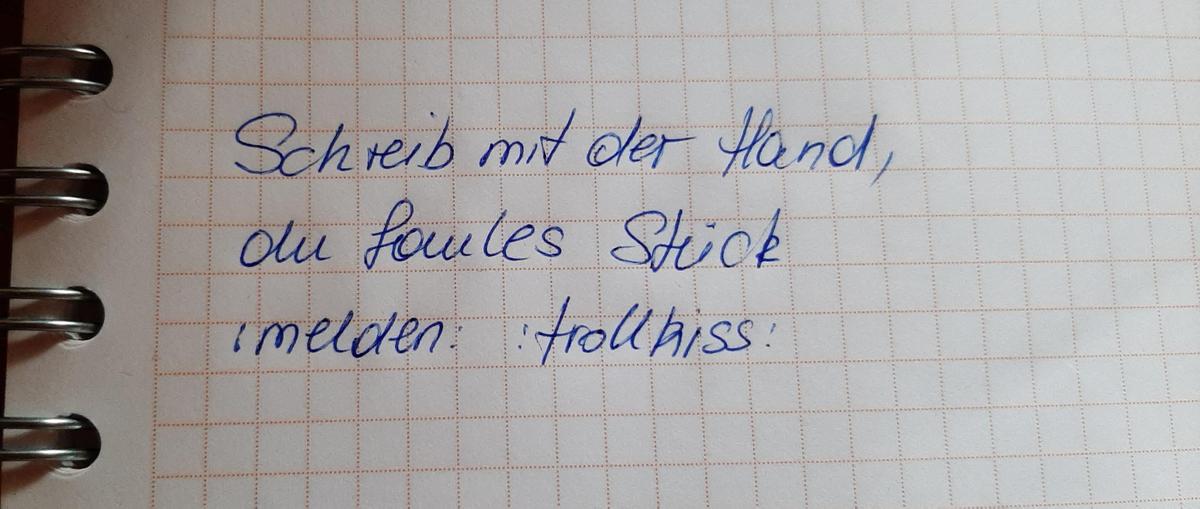 Schreib mit der Hand,
du faules Stück
:melden: :trollkiss: